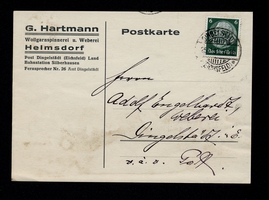 G. Hartmann
Wollgarnspinnerei u. Weberei
Helmsdorf
Post Dingelstädt (Eichsfeld) Land
Bahnstation Silberhausen
Fernsprecher Nr. 26 Amt Dingelstädt
Postkarte
Herrn
Adolf Engelhardt,
Weberei
Dingelstädt